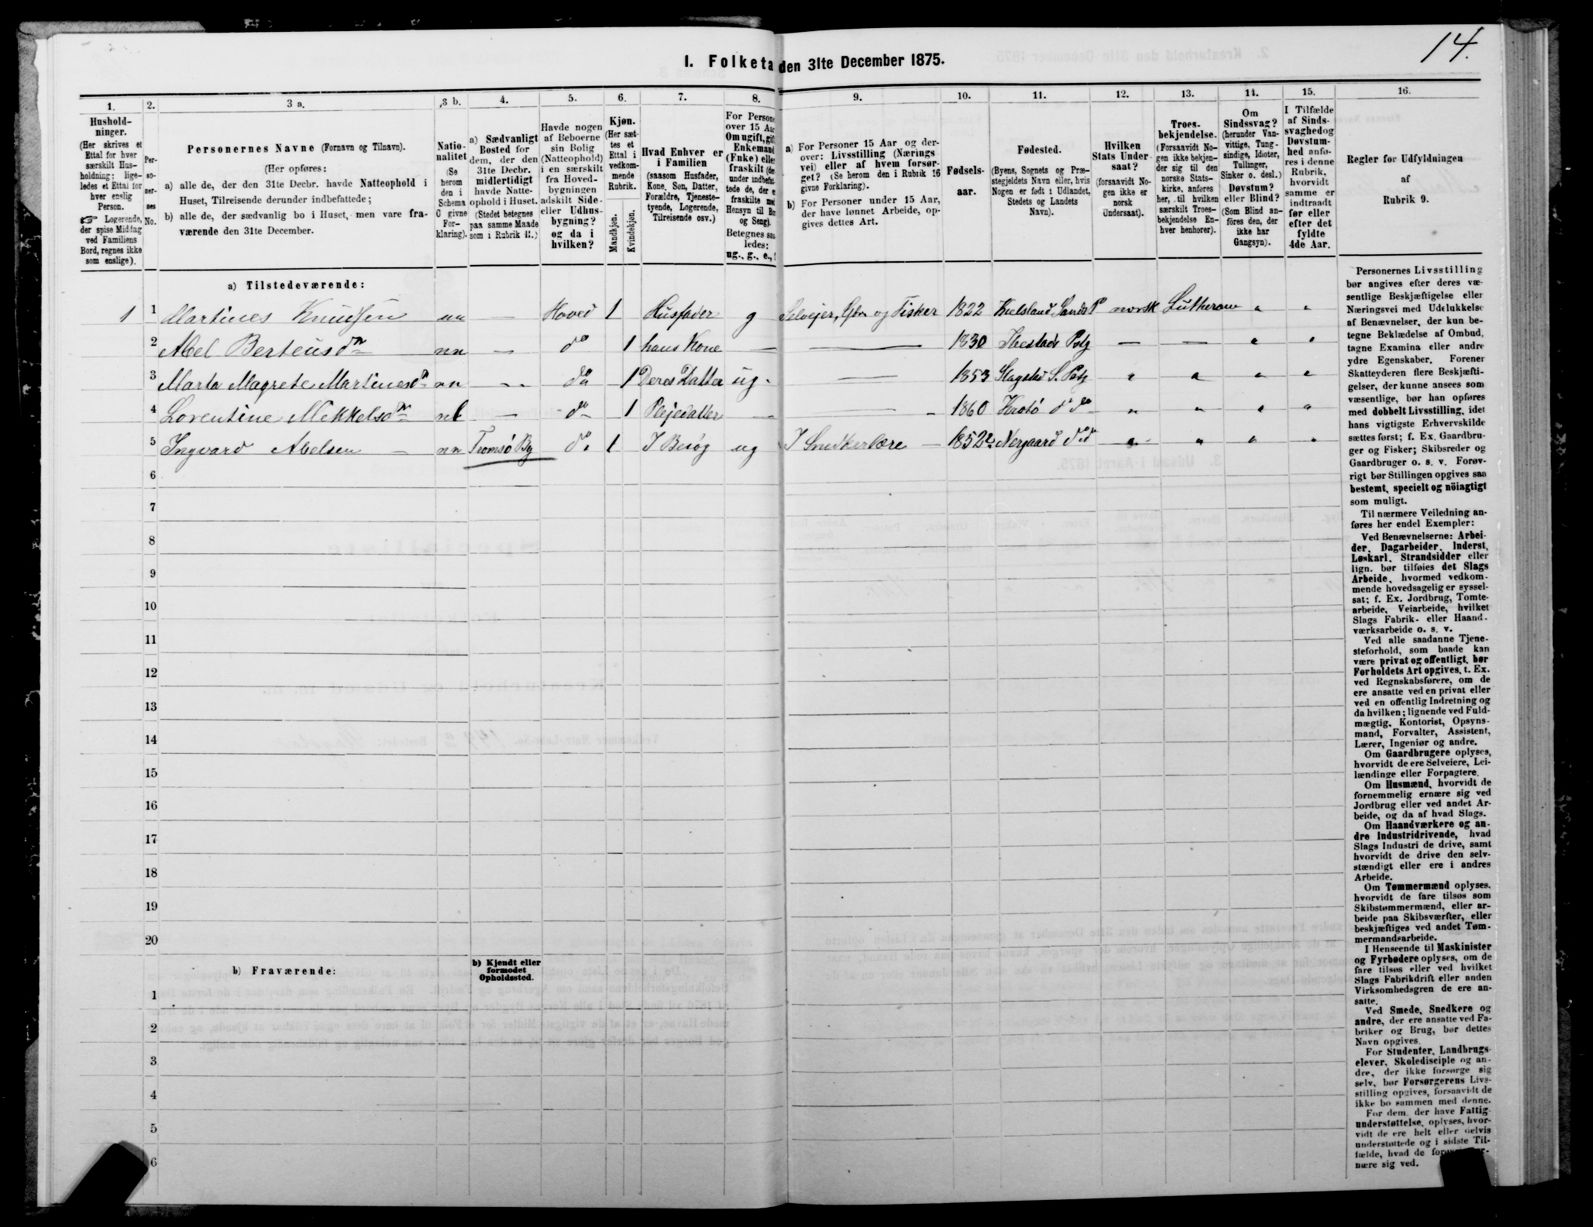 14.
I. Folketa
den 31te December 1875.
1. 2. 3 a. 3 b. 4. 5. 6. 7. 8. 9. 10. 11. 12. 13. 14. 15. 16.
Hushold-
ninger.
(Her skrives et
Ettal for hver
særskilt Hus-
holdning; lige-
ledes et Ettal for
hver enslig
Person.
☞ Logerende,
der spise Middag
ved Familiens
Bord, regnes ikke
som enslige).
Per-
so-
ner-
nes
No.
Personernes Navne (Fornavn og Tilnavn).
(Her opføres:
a) alle de, der den 31te Decbr. havde Natteophold i
Huset, Tilreisende derunder indbefattede;
b) alle de, der sædvanlig bo i Huset, men vare fra-
værende den 31te December.
Natio-
nalitet
(Se
herom
den i
Schema
O givne
For-
klaring).
a) Sædvanligt
Bosted for
dem, der den
31te Decbr.
midlertidigt
havde Natte-
ophold i Huset.
(Stedet betegnes
paa samme Maade
som i Rubrik 11.)
Havde nogen
af Beboerne
sin Bolig
(Natteophold)
i en særskilt
fra Hoved-
bygningen
adskilt Side-
eller Udhus-
bygning?
og da i
hvilken?
Kjøn.
(Her sæt-
tes et
Ettal i
vedkom-
mende
Rubrik.
Mandkjøn.
Kvindekjøn.
Hvad Enhver er
i Familien
(saasom Husfader,
Kone, Søn, Datter,
Forældre, Tjeneste-
tyende, Logerende,
Tilreisende osv.)
For Persone
over 15 Aar
Om ugift, gift
Enkemand
(Enke) eller
fraskilt
under indbefat-
tede de, der
fraskilte
Hensyn til Bo
og Seng).
Betegnes saa
ledes:
ug., g., e.,
a) For Personer 15 Aar og der-
over: Livsstilling (Nærings
vei) eller af hvem forsør-
get? (Se herom den i Rubrik 16
givne Forklaring).
b) For Personer under 15 Aar,
der have lønnet Arbeide, op-
gives dettes Art.
Fødsels-
aar.
Fødested.
(Byens, Sognets og Præ-
stegjeldets Navn eller, hvis
Nogen er født i Udlandet,
Stedets og Landets
Navn).
Hvilken
Stats Under-
saat?
(forsaavidt No-
gen ikke er
norsk
Undersaat).
Troes-
bekjendelse.
(Forsaavidt No-
gen ikke bekjen-
der sig til den
norske Stats-
kirke, anføres
her, til hvilken
særskilt Troes-
bekjendelse En-
hver henhorer).
Om
Sindssvag?
(herunder Van-
vittige, Tung-
sindige, Idioter,
Tullinger,
Sinker o. desl.)
Døvstum?
eller Blind?
(Som Blind an-
føres den, der
ikke har
Gangsyn).
I Tilfælde
af Sinds-
svaghed og
Døvstum-
hed anfø-
res i denne
Rubrik,
hvorvidt
samme er
indtraadt
før eller
efter det
fyldte
4de Aar.
Regler for Udfyldningen
af
Rubrik 9.
a) Tilstedeværende:
1 1 Martines Knudsen nn — Hoved 1 Husfader g Selveier, og Fisker 1822 norsk Lutheran " "
2 Abel Berteusdr nn — do 1 hans Kone — — 1830 — — " "
3 Marta Magrete Martinesdr nn — do 1 Deres Datter ug. — 1853 " " " "
4 Lorentine Mikkelsdr — do 1 Plejedatter — — 1860 " " " "
5 Ingvard Abelsen — nn Tromsø By do 1 I Besøg ug I Snedkerlære — 1852 Nergaard " " " "
6
7
8
9
10
11
12
13
14
15
16
17
18
19
20
b) Fraværende:
b) Kjendt eller
formodet
Opholdssted.
1
2
3
4
5
6
Personernes Livsstilling
bør angives efter deres væ-
sentlige Beskjæftigelse eller
Næringsvei med Udelukkelse
af Benævnelser, der kun be-
tegne Beklædelse af Ombud,
tagne Examina eller andre
ydre Egenskaber. Forener
Skatteyderen flere Beskjæfti-
gelser, der kunne ansees som
væsentlige, bør han opføres
med dobbelt Livsstilling, idet
hans vigtigste Erhvervskilde
sættes først; f. Ex. Gaardbru-
ger og Fisker; Skibsreder og
Gaardbruger o. s. v. Forøv-
rigt bør Stillingen opgives saa
bestemt, specielt og nöiagtigt
som muligt.
Til nærmere Veiledning an-
føres her endel Exempler:
Ved Benævnelserne: Arbei-
der, Dagarbeider, Inderst,
Løskarl, Strandsidder eller
lign. bør tilføies det Slags
Arbeide, hvormed vedkom-
mende hovedsagelig er syssel-
sat; f. Ex. Jordbrug, Tomte-
arbeide, Veiarbeide, hvilket
Slags Fabrik- eller Haand-
værksarbeide o. s. v.
Ved alle saadanne Tjene-
steforhold, som baade kan
være privat og offentligt, bør
Forholdets Art opgives, t. Ex.
ved Regnskabsførere, om de
ere ansatte ved en privat eller
ved en offentlig Indretning og
da hvilken; lignende ved Fuld-
mægtig, Kontorist, Opsyns-
mand, Forvalter, Assistent,
Lærer, Ingeniør og andre.
Om Gaardbrugere oplyses,
hvorvidt de ere Selveiere, Lei-
lændinge eller Forpagtere.
Om Husmænd, hvorvidt de
fornemmelig ernære sig ved
Jordbrug eller ved andet Ar-
beide, og da af hvad Slags.
Om Haandværkere og an-
dre Industridrivende, hvad
Slags Industri de drive, samt
hvorvidt de drive den selv-
stændigt eller ere i andres
Arbeide.
Om Tømmermænd oplyses,
hvorvidt de fare tilsøs som
Skibstømmermænd, eller ar-
beide paa Skibsværfter, eller
beskjæftiges ved andet Tøm-
mermandsarbeide.
I Henseende til Maskinister
og Fyrbødere oplyses, om de
fare tilsøs eller ved hvilket
Slags Fabrikdrift eller anden
Virksomhedsgren de ere an-
satte.
Ved Smede, Snedkere og
andre, der ere ansatte ved Fa-
briker og Brug, bør dettes
Navn opgives.
For Studenter, Landbrugs-
elever, Skoledisciple og an-
dre, der ikke forsørge sig
selv, bør Forsørgerens Livs-
stilling opgives, forsaavidt de
ikke bo sammen med denne.
For dem, der have Fattig-
understøttelse, oplyses, hvor-
vidt de ere helt eller delvis
understøttede og i sidste Til-
fælde, hvad de
nære sig ved.